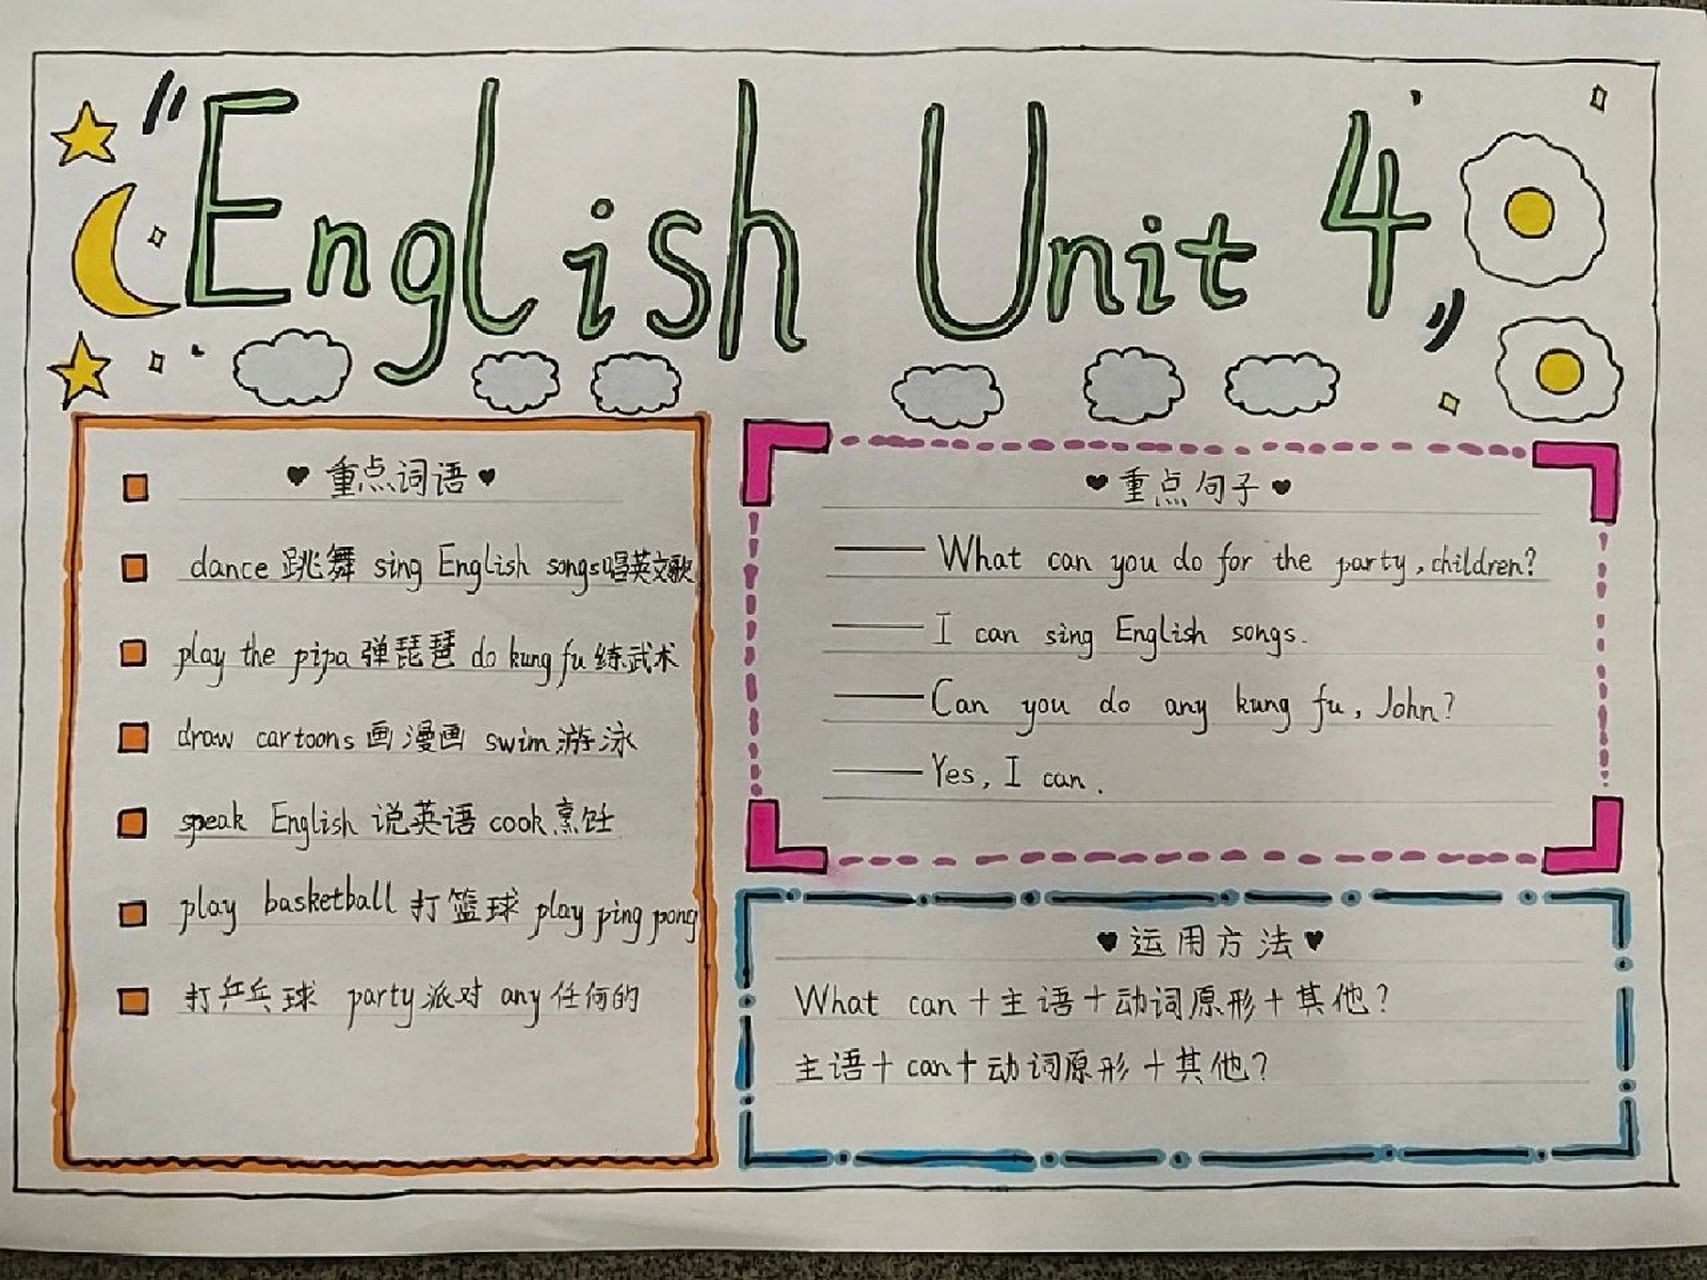 "English Unit 4"
♥重点词语♥
dance 跳舞 sing English songs唱英文歌
play the pipa 弹琵琶 do kung fu 练武术
draw cartoons 画漫画 swim 游泳
speak English 说英语 cook 烹饪
play basketball 打篮球 play ping pong
打乒乓球 party 派对 any 任何的
♥重点句子♥
——What can you do for the party, children?
——I can sing English songs.
——Can you do any kung fu, John?
——Yes, I can.
♥运用方法♥
What can+主语+动词原形+其他?
主语+can+动词原形+其他?